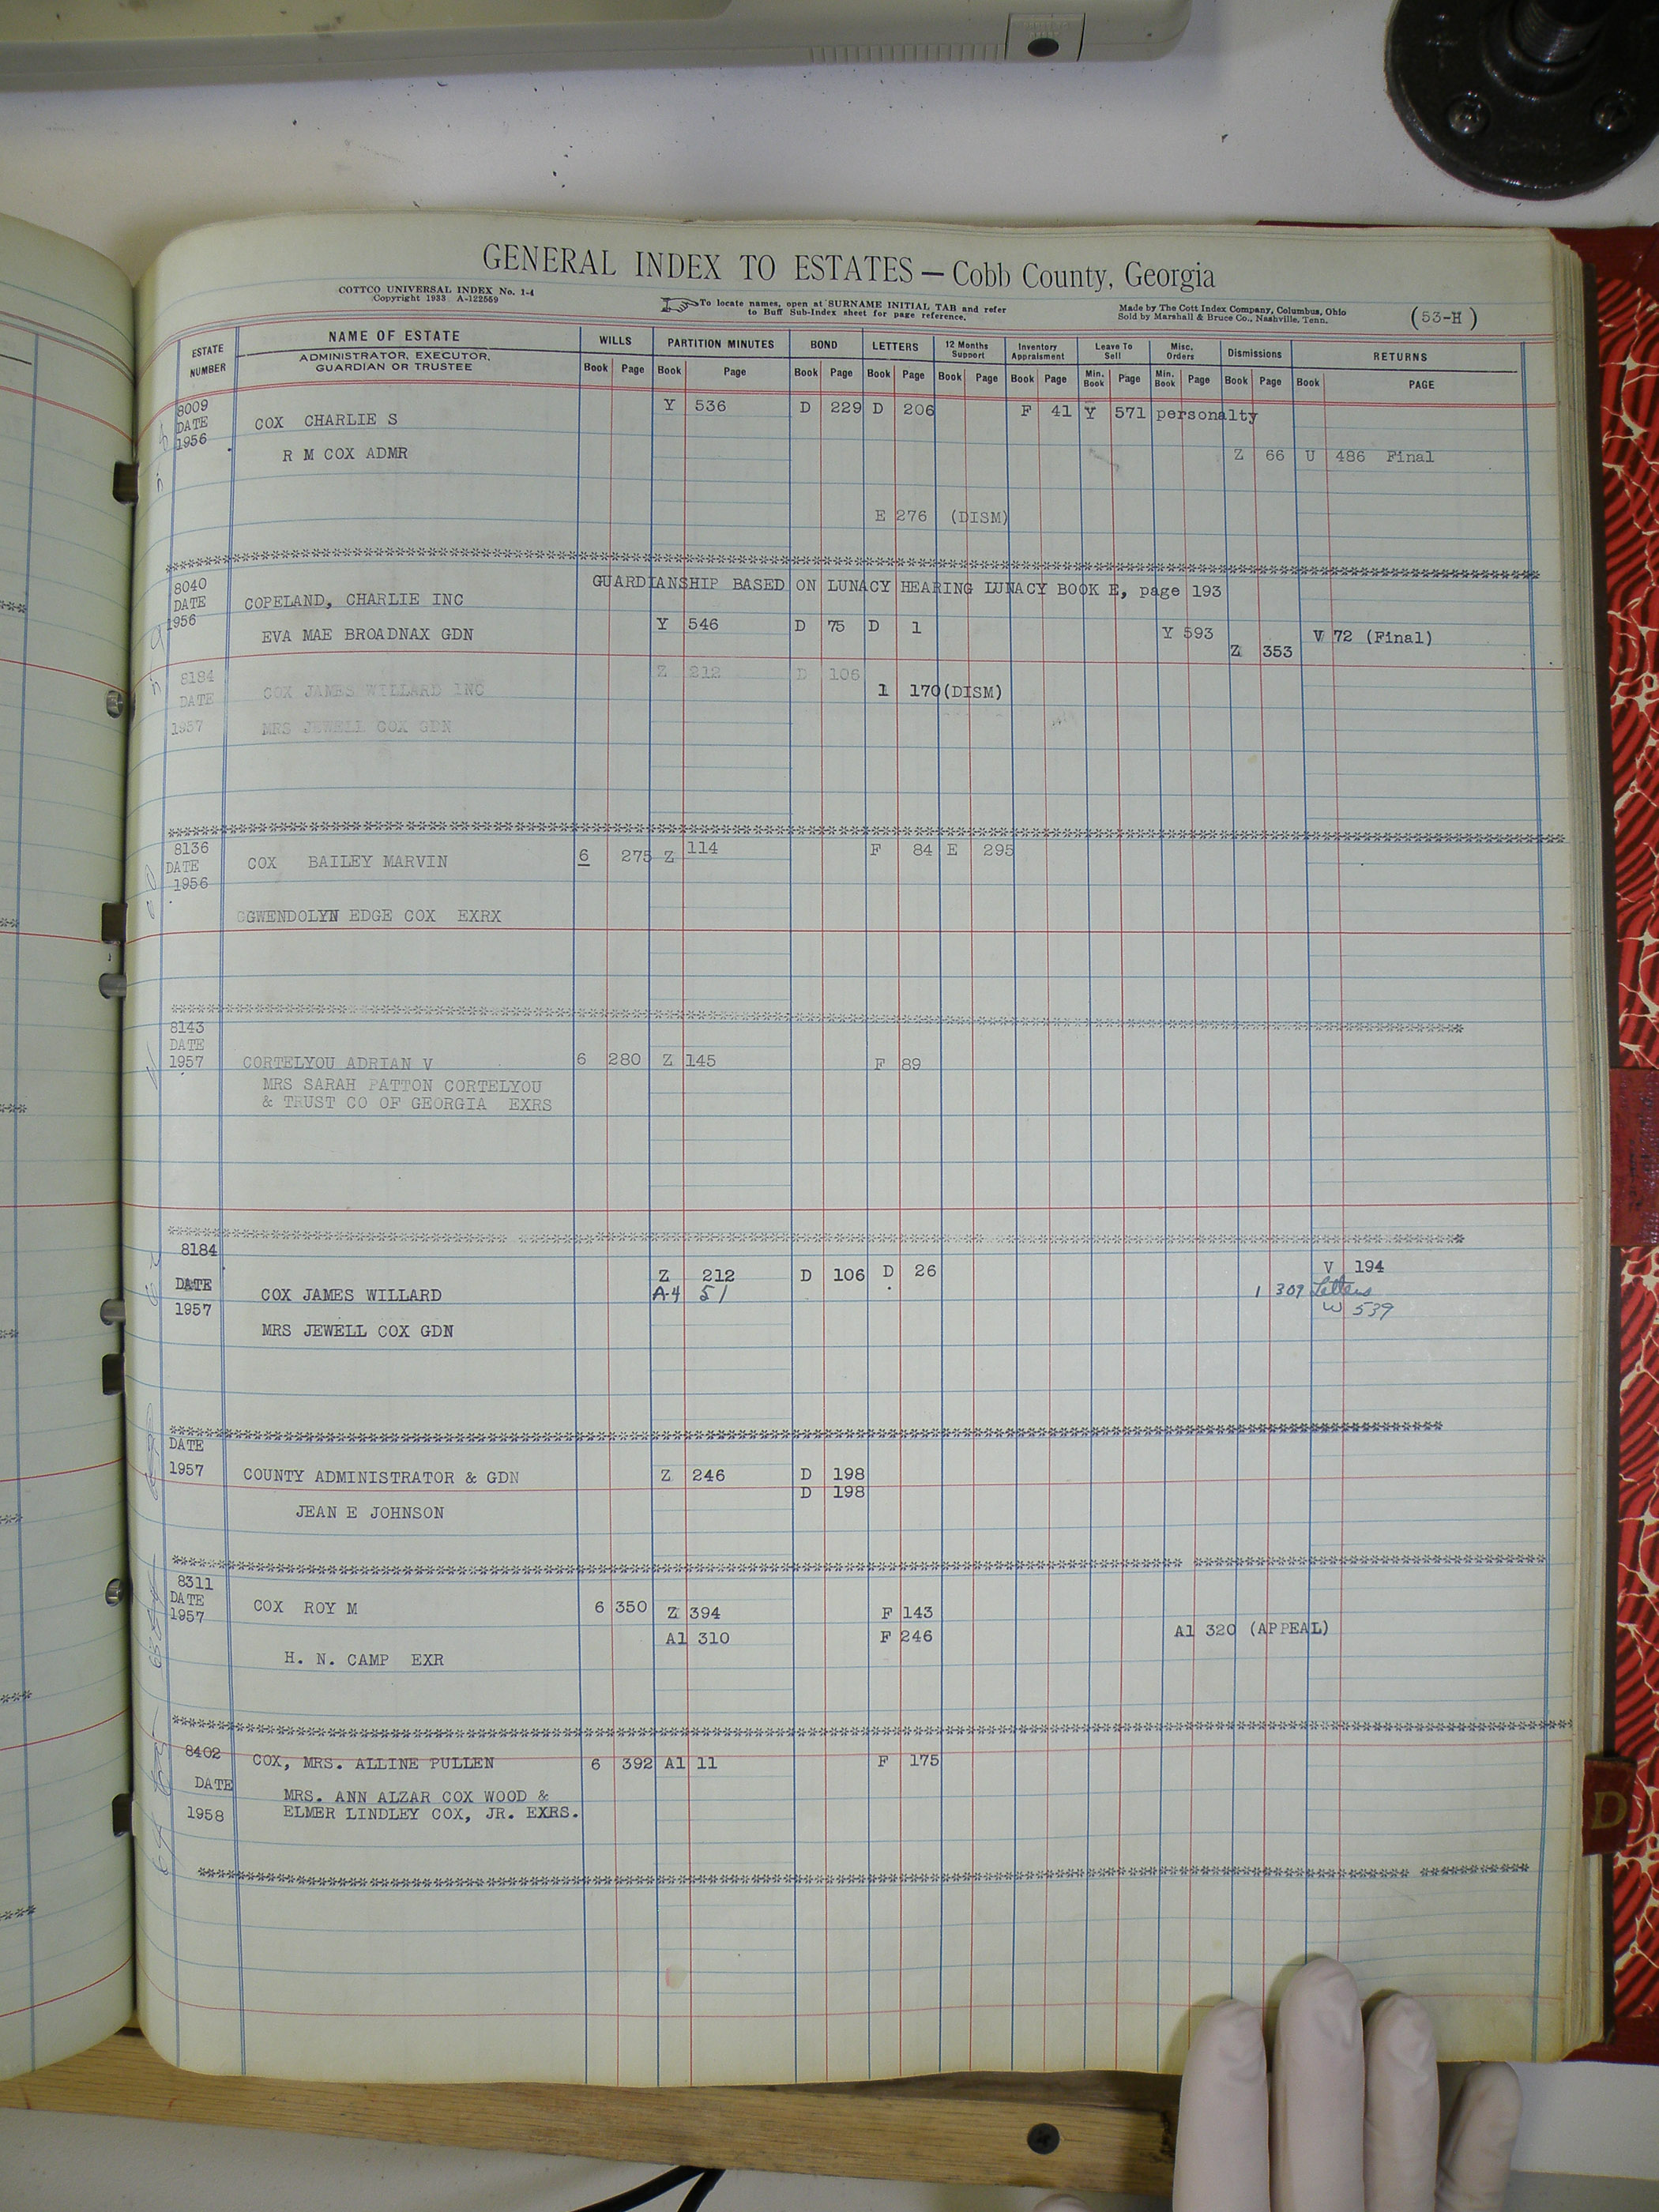 GENERAL INDEX TO ESTATES — Cobb County, Georgia
COTTCO UNIVERSAL INDEX No. 1-4
Copyright 1933 A-122559
To locate names, open at SURNAME INITIAL TAB and refer
to Buff Sub-Index sheet for page reference.
Made by The Cott Index Company, Columbus, Ohio
Sold by Marshall & Bruce Co., Nashville, Tenn.
(53-H)
ESTATE NUMBER
NAME OF ESTATE
ADMINISTRATOR, EXECUTOR,
GUARDIAN OR TRUSTEE
WILLS PARTITION MINUTES BOND LETTERS 12 Months Support Inventory Appraisment Leave To Sell Misc. Orders Dismissions RETURNS
Book Page Book Page Book Page Book Page Book Page Book Page Min. Book Page Min. Book Page Book Page Book PAGE
8009 Y 536 D 229 D 206 F 41 Y 571 personalty
DATE COX CHARLIE S
1956
R M COX ADMR Z 66 U 486 Final
E 276 (DISM)
8040 GUARDIANSHIP BASED ON LUNACY HEARING LUNACY BOOK E, page 193
DATE COPELAND, CHARLIE INC
1956 Y 546 D 75 D 1 Y 593 V 72 (Final)
EVA MAE BROADNAX GDN Z 353
8184 Z 212 D 106
DATE COX JAMES WILLARD INC 1 170(DISM)
1957 MRS JEWELL COX GDN
8136 114 F 84 E 295
DATE COX BAILEY MARVIN 6 275 Z
1956
GWENDOLYN EDGE COX EXRX
8143
DATE
1957 CORTELYOU ADRIAN V 6 280 Z 145 F 89
MRS SARAH PATTON CORTELYOU
& TRUST CO OF GEORGIA EXRS
8184
Z 212 D 106 D 26 V 194
DATE COX JAMES WILLARD A-4 51 1 309 Letters
1957 W 539
MRS JEWELL COX GDN
DATE
1957 COUNTY ADMINISTRATOR & GDN Z 246 D 198
D 198
JEAN E JOHNSON
8311
DATE COX ROY M 6 350 Z 394 F 143
1957
A1 310 F 246 A1 320 (APPEAL)
H. N. CAMP EXR
8402 COX, MRS. ALLINE PULLEN 6 392 A1 11 F 175
DATE MRS. ANN ALZAR COX WOOD &
1958 ELMER LINDLEY COX, JR. EXRS.
D